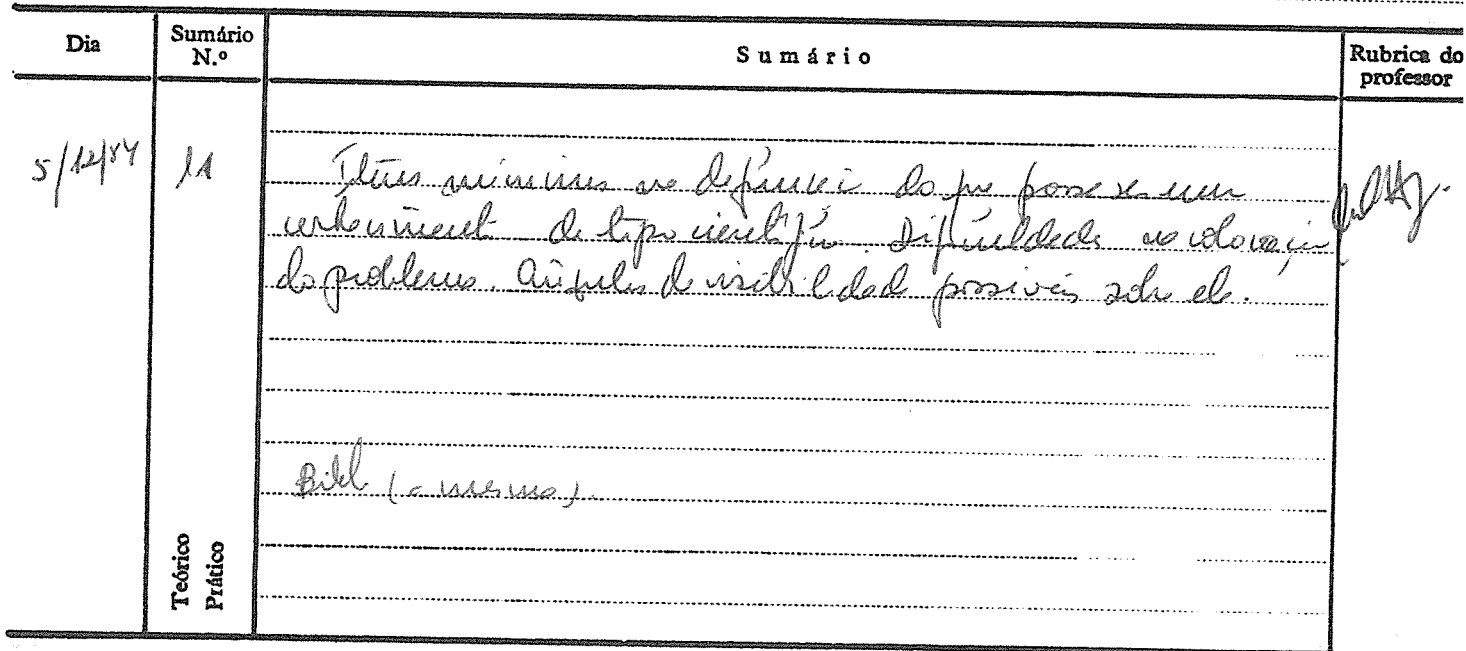 Dia
Sumário N.º
Sumário
Rubrica do professor
5/12/84
11
Itens mínimos na definição do que possa ser um
conhecimento de tipo científico. Dificuldade na colocação
do problema. Ângulos de visibilidade possíveis sobre ele.
Bibl. (a mesma).
Teórico
Prático